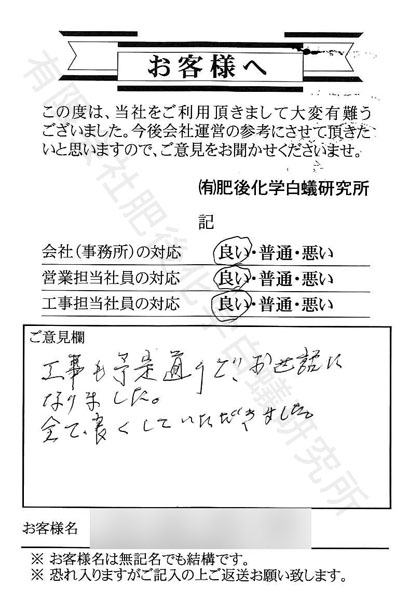 お客様へ
この度は、当社をご利用頂きまして大変有難う
ございました。今後会社運営の参考にさせて頂きた
いと思いますので、ご意見をお聞かせくださいませ。
㈲肥後化学白蟻研究所
記
会社(事務所)の対応 良い・普通・悪い
営業担当社員の対応 良い・普通・悪い
工事担当社員の対応 良い・普通・悪い
ご意見欄
工事も予定通りで、お世話に
なりました。
全て、良くしていただきました。
お客様名
※ お客様名は無記名でも結構です。
※ 恐れ入りますがご記入の上ご返送お願い致します。
有限会社肥後化学白蟻研究所